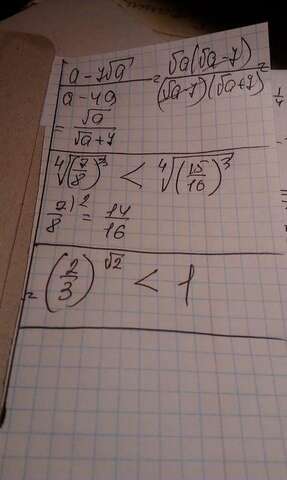 (a - 7√a)/(a - 49) = (√a(√a - 7))/((√a - 7)(√a + 7)) =
= √a/(√a + 7)
⁴√((7/8)³) < ⁴√((15/16)³)
7/8 )² = 14/16
(2/3)^√2 < 1